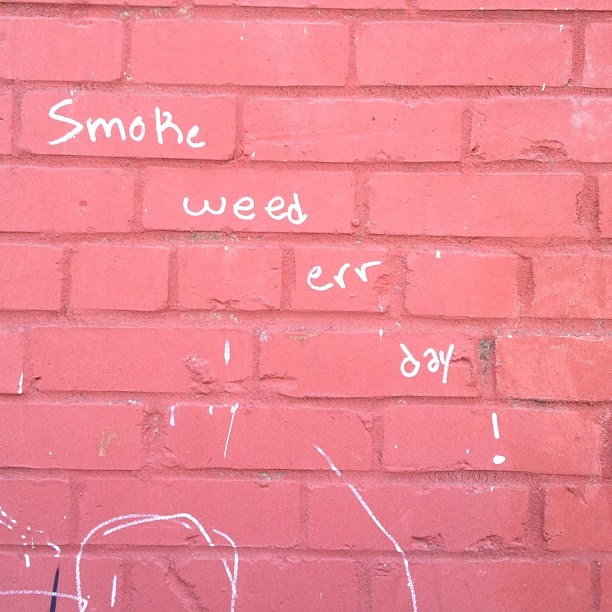 Smoke
weed
err
day
!